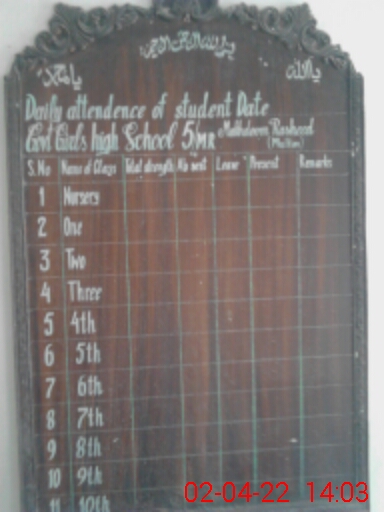 بسم الله الرحمن الرحيم
يا الله
يا محمد
Daily attendence of student Date
Govt Girls high School 5/MR Makhdoom Rasheed
(Multan)
S.No Name of Class Total strength Leave Present Remarks
1 Nursery
2 One
3 Two
4 Three
5 4th
6 5th
7 6th
8 7th
9 8th
10 9th
11 10th
02-04-22 14:03